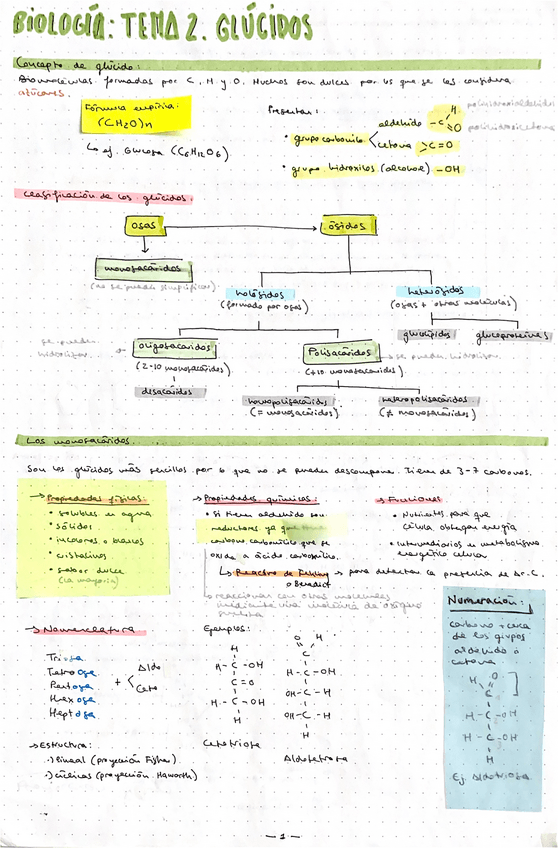 BIOLOGÍA: TEMA 2. GLÚCIDOS
Concepto de glúcido:
Biomoléculas formadas por C, H y O. Muchos son dulces por lo que se les considera
azúcares.
Fórmula empírica:
(CH2O)n
↳ ej. Glucosa (C6H12O6)
Presentan:
• grupo carbonilo
aldehído -C H O
cetona >C=O
polihidroxialdehído
polihidroxicetona
• grupo hidroxilos (alcohol) -OH
Clasificación de los glúcidos.
osas → ósidos
monosacáridos
(no se pueden simplificar)
holósidos
(formado por osas)
heterósidos
(osas + otras moléculas)
glucolípidos
glucoproteínas
se pueden
hidrolizar.
oligosacáridos
(2-10 monosacáridos)
disacáridos
Polisacáridos
(+10 monosacáridos)
→ se pueden hidrolizar
homopolisacáridos
(= monosacáridos)
heteropolisacáridos
(≠ monosacáridos)
Los monosacáridos.
Son los glúcidos más sencillos por lo que no se pueden descomponer. Tienen de 3-7 carbonos.
→ Propiedades físicas:
• solubles en agua
• sólidos
• incoloros o blancos
• cristalinos
• sabor dulce
(la mayoría)
→ Propiedades químicas:
• si tienen aldehído son
reductores ya que
carbono carbonílico que se
oxida a ácido carboxílico.
↳ Reactivo de Fehling → para detectar la presencia de Ar-C.
o Benedict
→ reaccionar con otras moléculas
mediante una molécula de oxígeno
→ Funciones
• Nutrientes para que
célula obtenga energía
• Intermediarios en metabolismo
energético celular
→ Nomenclatura
Triosa
Tetrosa
Pentosa
Hexosa
Heptosa
+ < Aldo
Ceto
Ejemplos:
H
H-C-OH
C=O
H-C-OH
H
Cetotriosa
O H
C
H-C-OH
OH-C-H
OH-C-H
H
Aldotetrosa
Numeración:
carbono + cerca
de los grupos
aldehído o
cetona
H O
C
H-C-OH
H-C-OH
H
Ej. Aldotriosa
→ Estructura:
·) lineal (proyección Fisher)
·) cíclicas (proyección Haworth)
— 1 —